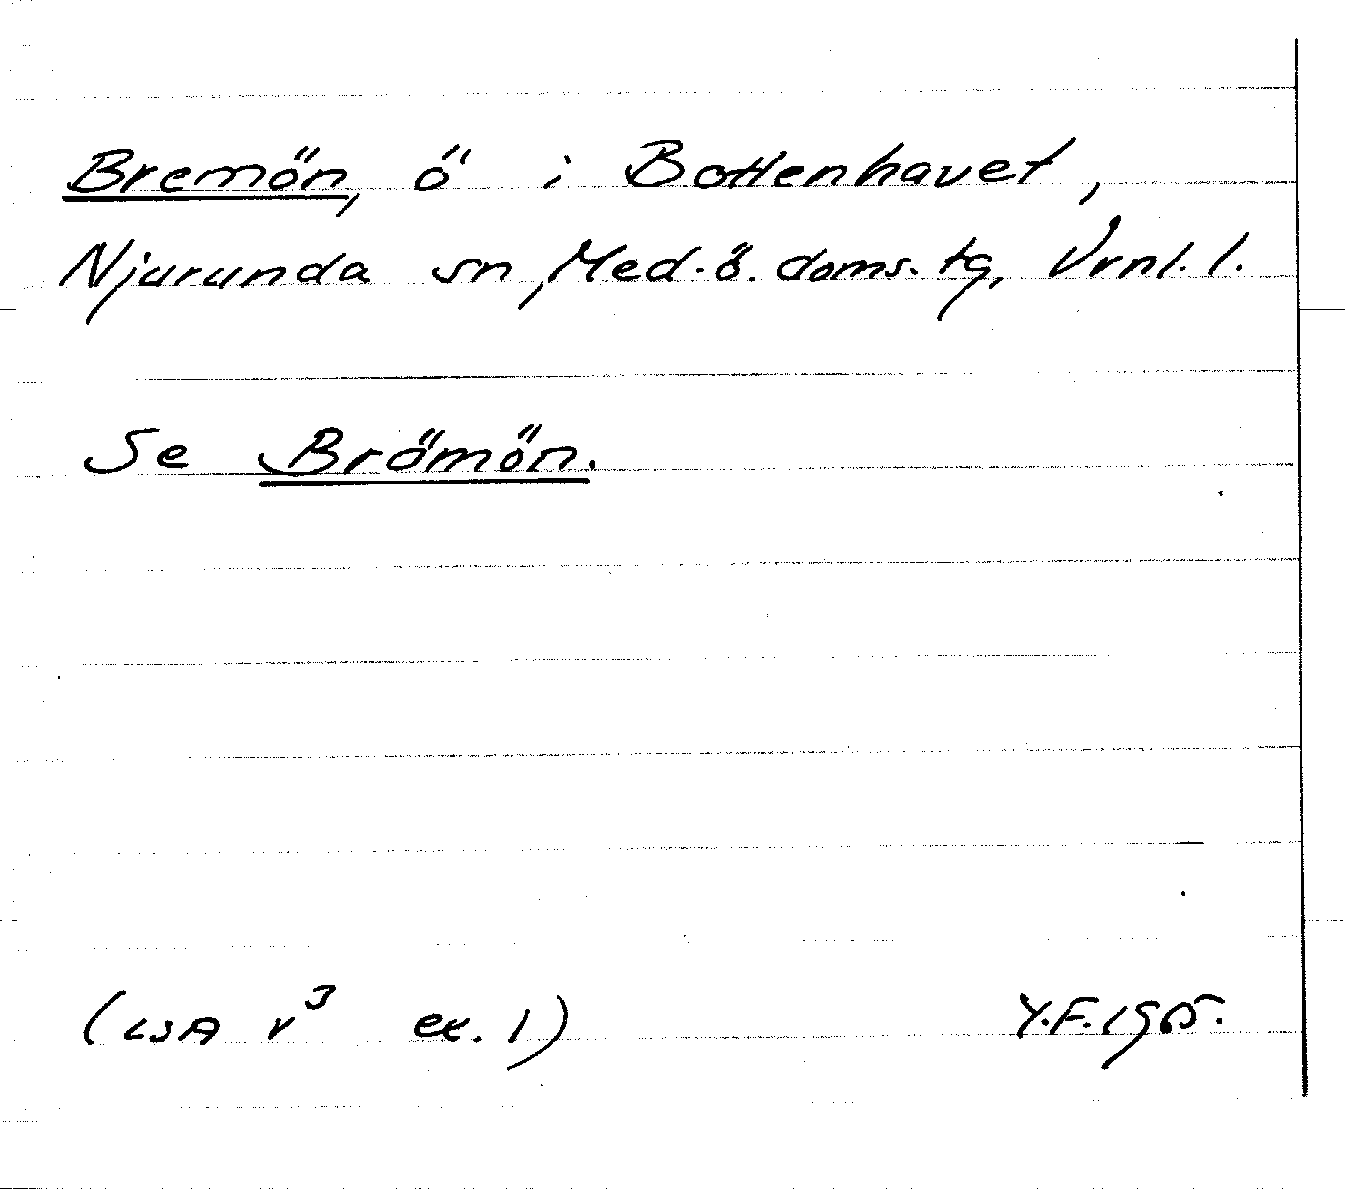 Bremön, ö i Bottenhavet,
Njurunda sn, Med. ö. doms. tg, Vrnl. l.
Se Brömön.
(LSA v³ ex. 1) Y.F. 1905.